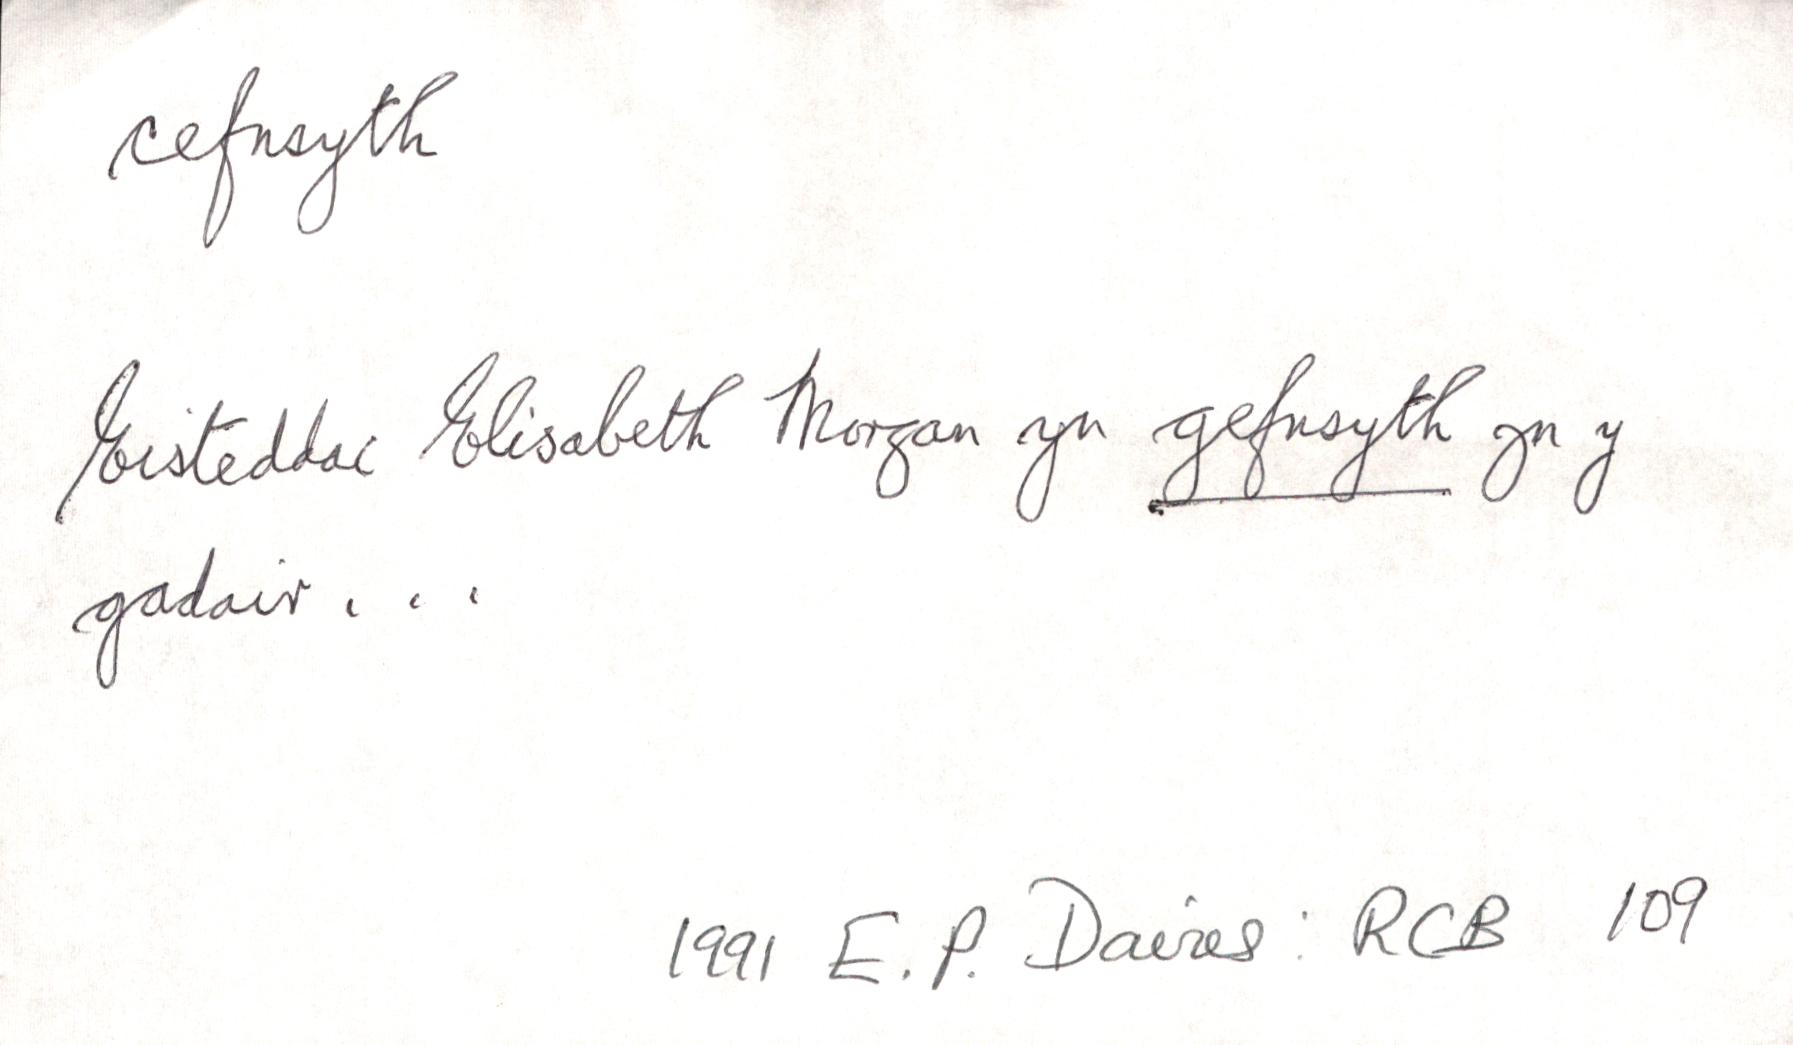 cefnsyth
Eisteddai Elisabeth Morgan yn gefnsyth yn y
gadair . . .
1991 E. P. Davies : RCB 109